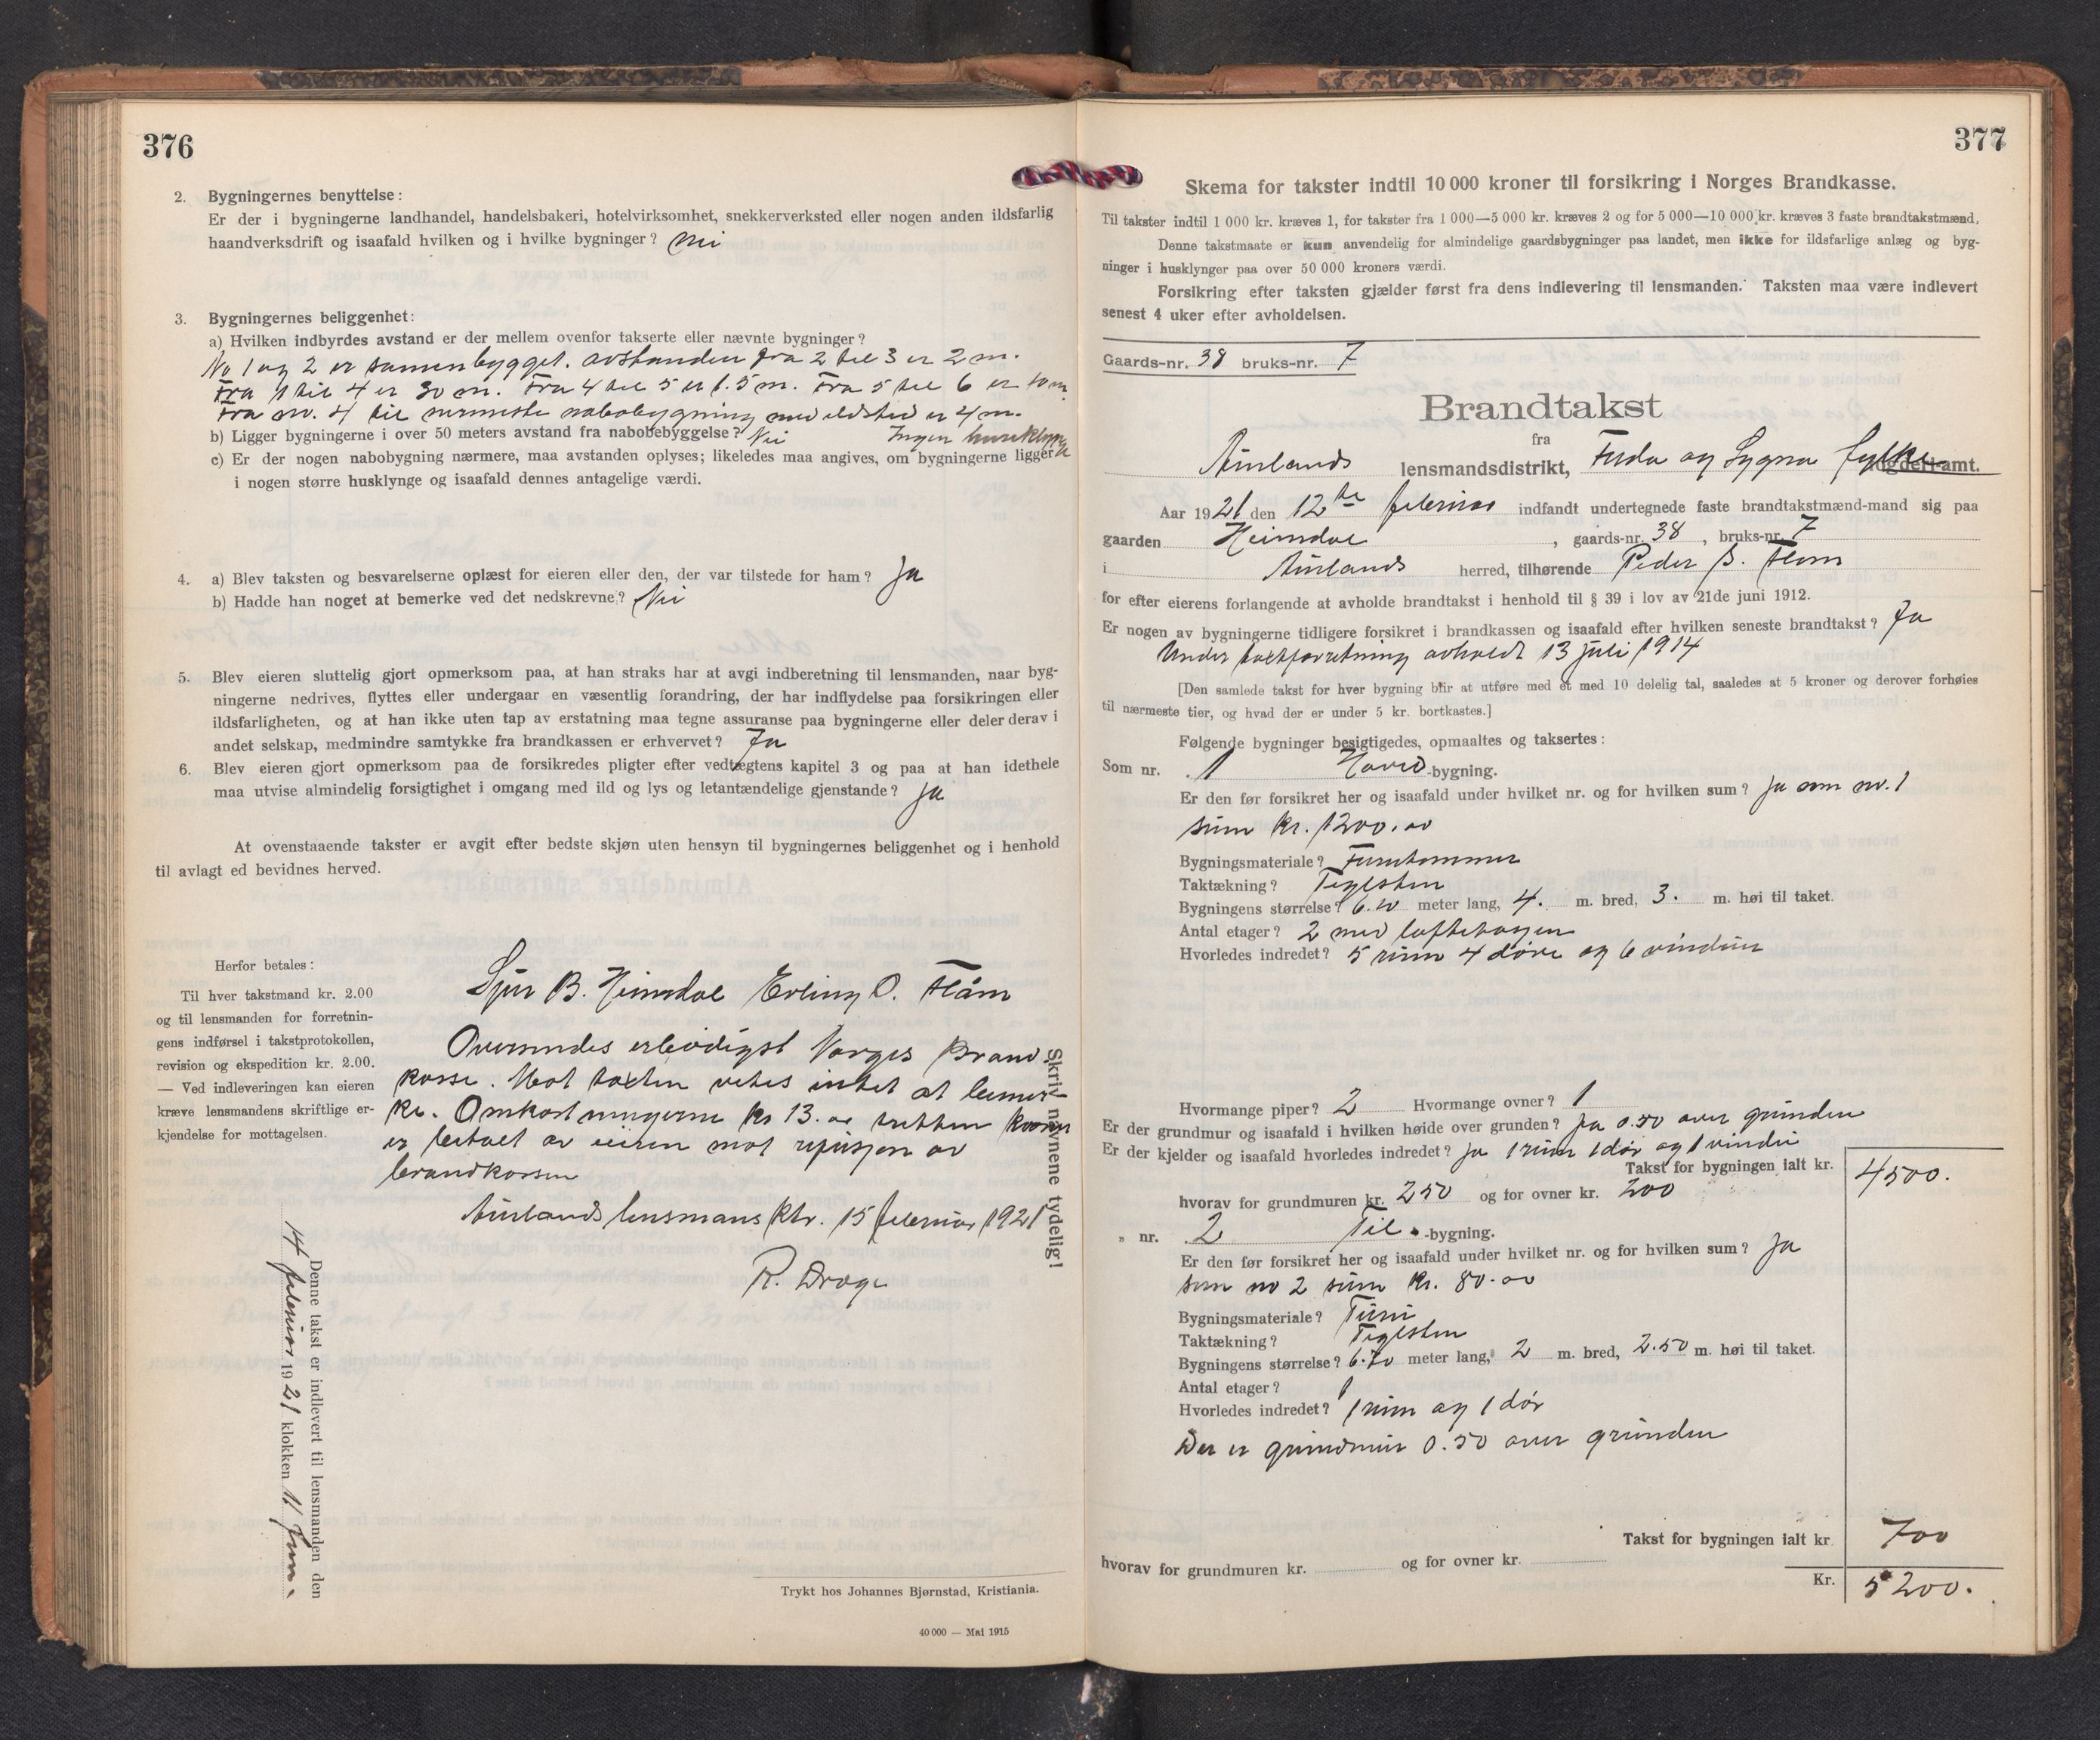 376
2. Bygningernes benyttelse:
Er der i bygningerne landhandel, handelsbakeri, hotelvirksomhet, snekkerverksted eller nogen anden ildsfarlig
haandverksdrift og isaafald hvilken og i hvilke bygninger? nei
3. Bygningernes beliggenhet:
a) Hvilken indbyrdes avstand er der mellem ovenfor takserte eller nævnte bygninger?
No 1 og 2 er sammenbygget. avstanden fra 2 til 3 er 2 m.
Fra 1 til 4 er 30 m. Fra 4 til 5 er 1.5 m. Fra 5 til 6 er 10 m.
Fra nr. 4 til nermeste nabobygning med ildsted er 4 m.
b) Ligger bygningerne i over 50 meters avstand fra nabobebyggelse? Nei Ingen husklynge
c) Er der nogen nabobygning nærmere, maa avstanden oplyses; likeledes maa angives, om bygningerne ligger
i nogen større husklynge og isaafald dennes antagelige værdi.
4. a) Blev taksten og besvarelserne oplæst for eieren eller den, der var tilstede for ham? Ja
b) Hadde han noget at bemerke ved det nedskrevne? Nei
5. Blev eieren sluttelig gjort opmerksom paa, at han straks har at avgi indberetning til lensmanden, naar byg-
ningerne nedrives, flyttes eller undergaar en væsentlig forandring, der har indflydelse paa forsikringen eller
ildsfarligheten, og at han ikke uten tap av erstatning maa tegne assuranse paa bygningerne eller deler derav i
andet selskap, medmindre samtykke fra brandkassen er erhvervet? Ja
6. Blev eieren gjort opmerksom paa de forsikredes pligter efter vedtægtens kapitel 3 og paa at han idethele
maa utvise almindelig forsigtighet i omgang med ild og lys og letantændelige gjenstande? ja
At ovenstaaende takster er avgit efter bedste skjøn uten hensyn til bygningernes beliggenhet og i henhold
til avlagt ed bevidnes herved.
Herfor betales:
Til hver takstmand kr. 2.00
og til lensmanden for forretnin-
gens indførsel i takstprotokollen,
revision og ekspedition kr. 2.00.
— Ved indleveringen kan eieren
kræve lensmandens skriftlige er-
kjendelse for mottagelsen.
Sjur B. Heimdal Erling O. Flåm
Oversendes erbødigst Norges Brand-
kasse. Mot taxten vites intet at bemer-
ke. Omkostningerne kr 13.00 tretten kroner
er betalt av eieren mot refusjon av
brandkassen
Aurlands lensmans ktr. 15 februar 1921
R. Drage
Skriv navnene tydelig!
Denne takst er indlevert til lensmanden den
14 februar 1921 klokken 11 fm.
Trykt hos Johannes Bjørnstad, Kristiania.
40 000 — Mai 1915
377
Skema for takster indtil 10 000 kroner til forsikring i Norges Brandkasse.
Til takster indtil 1 000 kr. kræves 1, for takster fra 1 000—5 000 kr. kræves 2 og for 5 000—10 000 kr. kræves 3 faste brandtakstmænd.
Denne takstmaate er kun anvendelig for almindelige gaardsbygninger paa landet, men ikke for ildsfarlige anlæg og byg-
ninger i husklynger paa over 50 000 kroners værdi.
Forsikring efter taksten gjælder først fra dens indlevering til lensmanden. Taksten maa være indlevert
senest 4 uker efter avholdelsen.
Gaards-nr. 38 bruks-nr. 7
Brandtakst
fra
Aurlands lensmandsdistrikt, Firda og Sygna fylke amt.
Aar 1921 den 12te februar indfandt undertegnede faste brandtakstmænd-mand sig paa
gaarden Heimdal, gaards-nr. 38, bruks-nr. 7
i Aurlands herred, tilhørende Peder B. Flom
for efter eierens forlangende at avholde brandtakst i henhold til § 39 i lov av 21de juni 1912.
Er nogen av bygningerne tidligere forsikret i brandkassen og isaafald efter hvilken seneste brandtakst? Ja
Under taxtforretning avholdt 13 juli 1914
[Den samlede takst for hver bygning blir at utføre med et med 10 delelig tal, saaledes at 5 kroner og derover forhøies
til nærmeste tier, og hvad der er under 5 kr. bortkastes.]
Følgende bygninger besigtigedes, opmaaltes og taksertes:
Som nr. 1 Hoved-bygning.
Er den før forsikret her og isaafald under hvilket nr. og for hvilken sum? ja som nr. 1
sum kr. 1200.00
Bygningsmateriale? Furutømmer
Taktækning? Teglsten
Bygningens størrelse? 6.20 meter lang, 4. m. bred, 3. m. høi til taket.
Antal etager? 2 med loftetagen
Hvorledes indredet? 5 rum 4 døre og 6 vinduer
Hvormange piper? 2 Hvormange ovner? 1
Er der grundmur og isaafald i hvilken høide over grunden? ja 0.50 over grunden
Er der kjelder og isaafald hvorledes indredet? ja 1 rum 1 dør og 1 vindu
Takst for bygningen ialt kr. 4500.
hvorav for grundmuren kr. 250 og for ovner kr. 200
„ nr. 2 Til-bygning.
Er den før forsikret her og isaafald under hvilket nr. og for hvilken sum? ja
som no 2 sum kr. 80.00
Bygningsmateriale? Furu
Taktækning? Teglsten
Bygningens størrelse? 6.20 meter lang, 2 m. bred, 2.50 m. høi til taket.
Antal etager? 1
Hvorledes indredet? 1 rum og 1 dør
Der er grundmur 0.50 over grunden
Takst for bygningen ialt kr. 700
hvorav for grundmuren kr. og for ovner kr.
Kr. 5200.